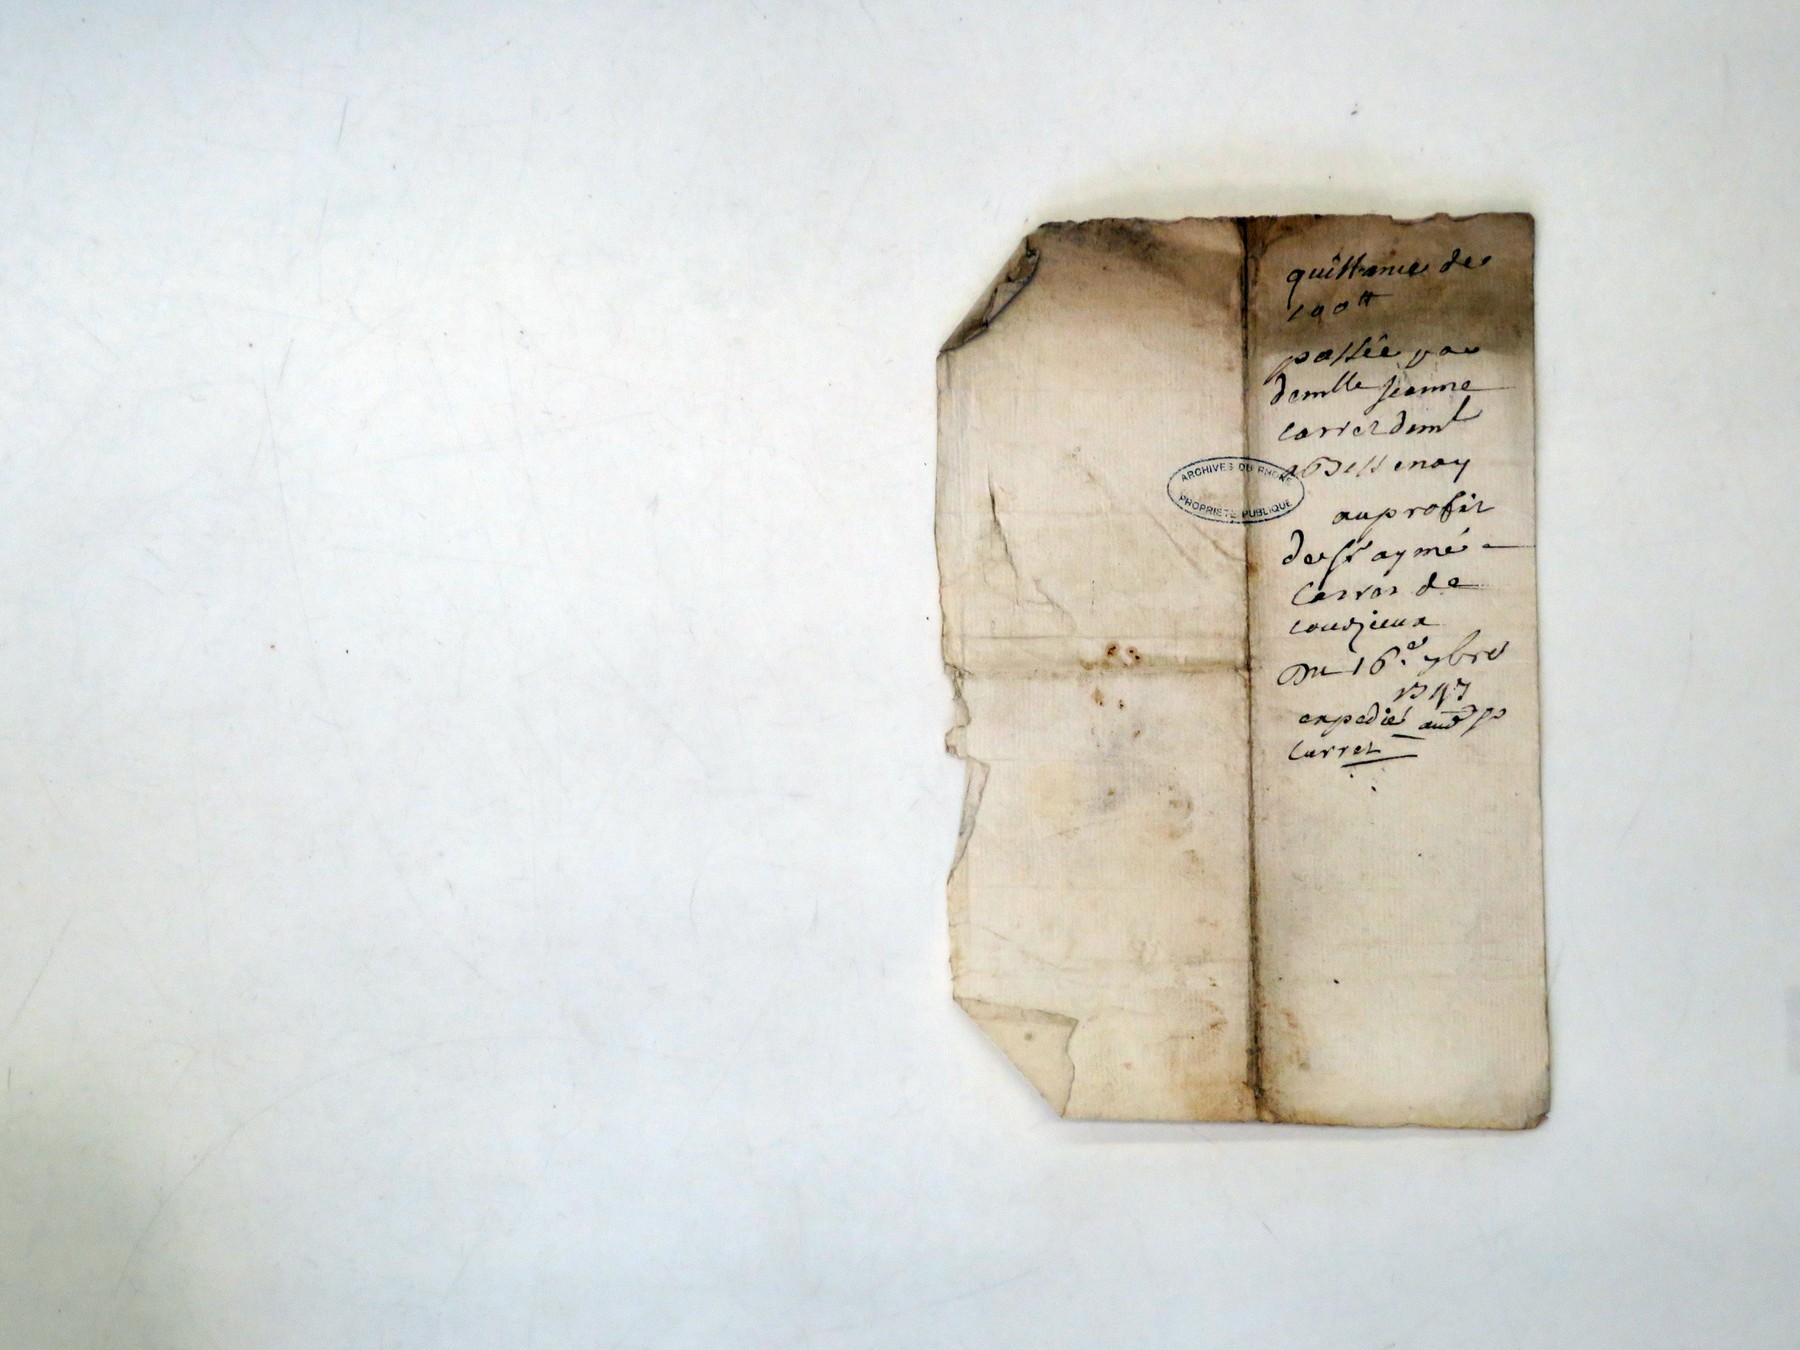 quittance de
100 tt
passée par
demlle Jeanne
Carret demt
a Bessenay
au profit
de sr aymé
Carret de
Courzieux
Du 16e 9bre
1747
expedié aud sr
Carret
ARCHIVES DU RHONE
PROPRIÉTÉ PUBLIQUE